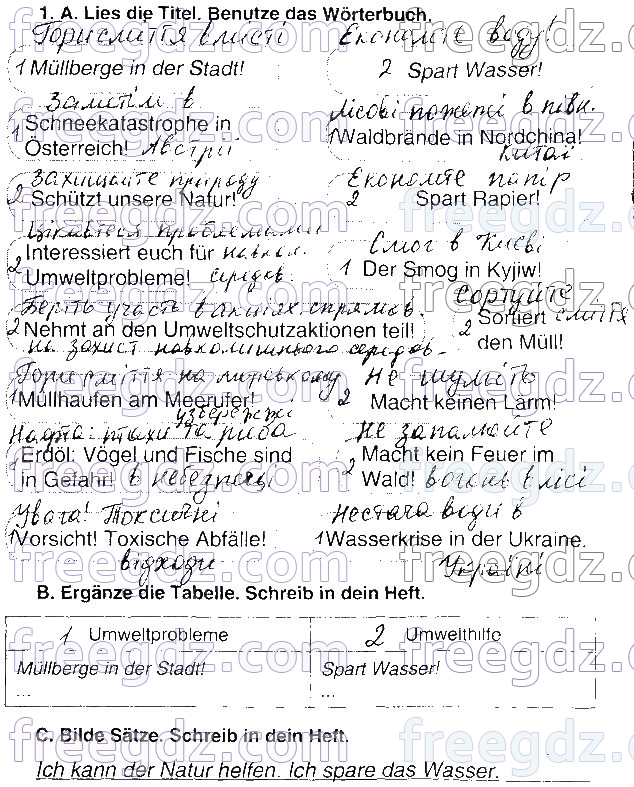 1. A. Lies die Titel. Benutze das Wörterbuch.
Гори сміття в місті
Економте воду!
1 Müllberge in der Stadt!
2 Spart Wasser!
Заметіль в
Лісові пожежі в півн.
1 Schneekatastrophe in
Österreich! Австрії
1 Waldbrände in Nordchina!
Китаї
Захищайте природу
Економте папір
2 Schützt unsere Natur!
2 Spart Papier!
Цікавтеся проблемами
Interessiert euch für навкол.
2 Umweltprobleme! середов.
Смог в Києві
1 Der Smog in Kyjiw!
Беріть участь в акціях спрямов.
Сортуйте
2 Nehmt an den Umweltschutzaktionen teil!
на захист навколишнього середов.
2 Sortiert сміття
den Müll!
Гори сміття на морському
1 Müllhaufen am Meerufer!
узбережжі
Не шуміть
2 Macht keinen Lärm!
Нафта: птахи та риба
Не запалюйте
1 Erdöl: Vögel und Fische sind
in Gefahr! в небезпеці
2 Macht kein Feuer im
Wald! вогонь в лісі
Увага! Токсичні
Нестача води в
1 Vorsicht! Toxische Abfälle!
відходи
1 Wasserkrise in der Ukraine.
Україні
B. Ergänze die Tabelle. Schreib in dein Heft.
1 Umweltprobleme
2 Umwelthilfe
Müllberge in der Stadt!
Spart Wasser!
...
...
C. Bilde Sätze. Schreib in dein Heft.
Ich kann der Natur helfen. Ich spare das Wasser.
freegdz.com